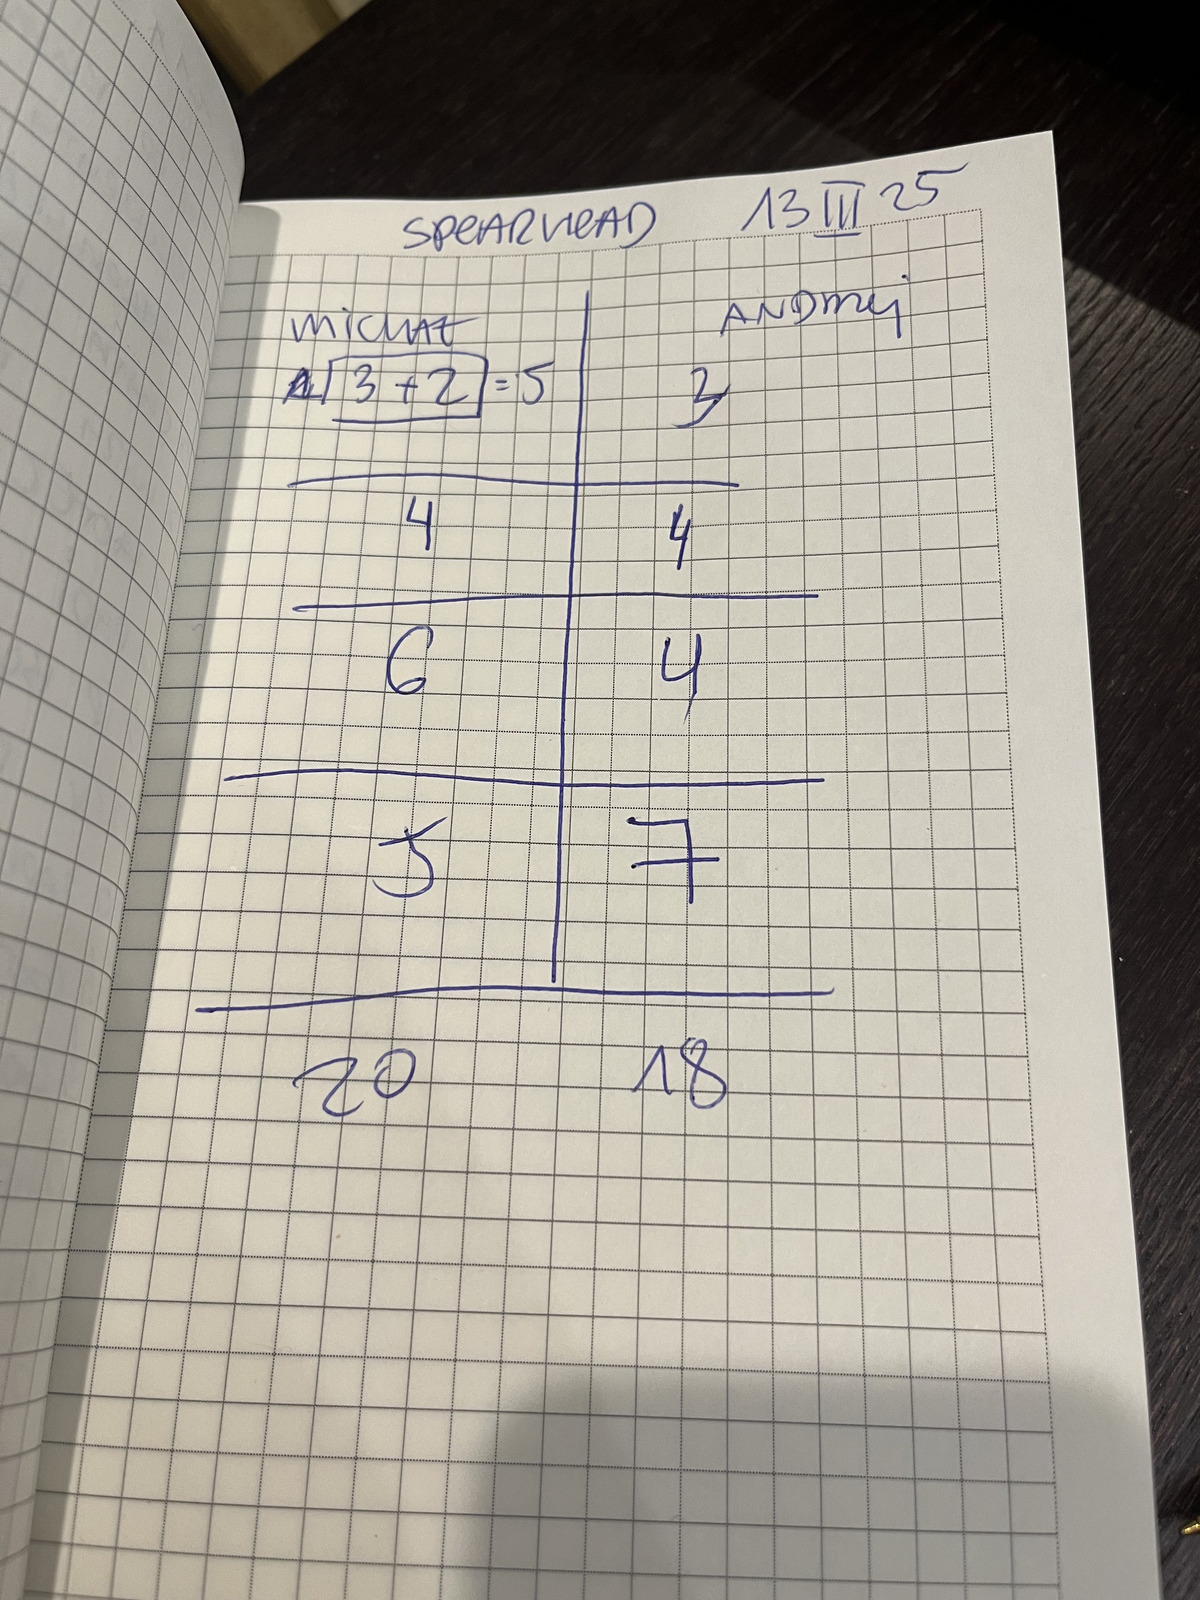 SPEARHEAD 13 III 25
MICHAŁ ANDRZEJ
3+2 = 5 3
4 4
6 4
5 7
20 18